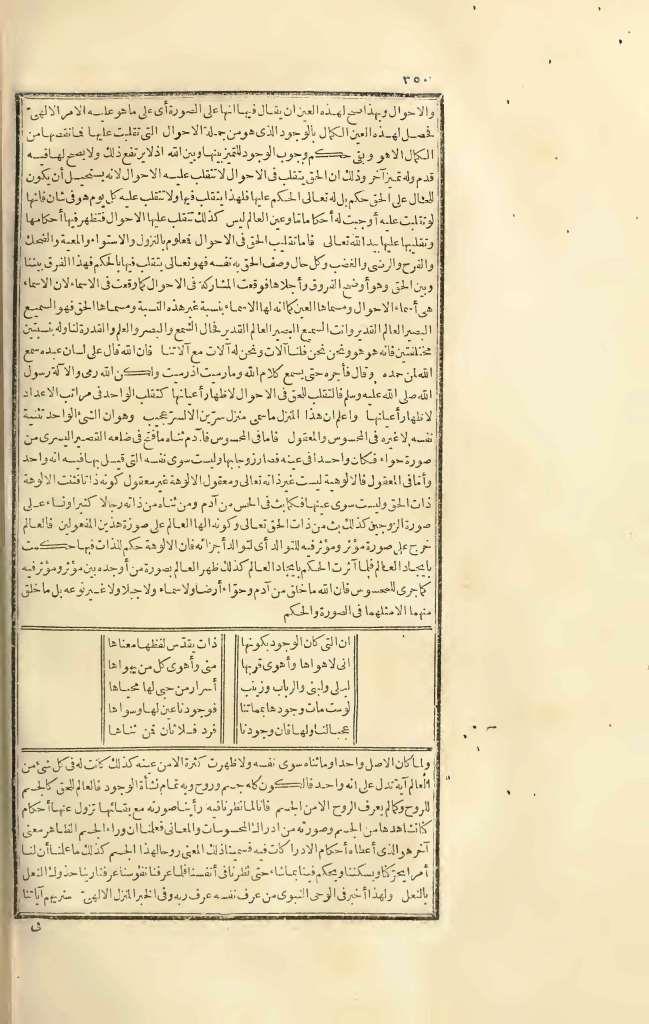 ٣٥٠
والاحوال وبهذا صح لهذه العين ان يقال فيها انها على الصورة أى على ما هو عليه الامر الالهى
فحصل لهذه العين الكمال بالوجود الذى هو من جملة الاحوال التى تقلبت عليها فما نقصها من
الكمال الا هو وبقى حكم وجوب الوجود للتمييز بينها وبين الله اذ لا يرتفع ذلك ولا يصح لها فيه
قدم وله تميز آخر وذلك ان الحق يتقلب فى الاحوال لا تتقلب عليه الاحوال لانه يستحيل أن يكون
للحال على الحق حكم بل له تعالى الحكم عليها فلهذا يتقلب فيها ولا تتقلب عليه كل يوم هو فى شأن فانها
لو تقلبت عليه أوجبت له أحكاما ما وعين العالم ليس كذلك تتقلب عليها الاحوال فتظهر فيها أحكامها
وتقليبها عليها بيد الله تعالى فاما تقليب الحق فى الاحوال فمعلوم بالنزول والاستواء والمعية والضحك
والفرح والرضى والغضب وكل حال وصف الحق به نفسه فهو تعالى يتقلب فيها بالحكم فهذا الفرق بيننا
وبين الحق وهو أوضح الفروق وأجلاها فوقعت المشاركة فى الاحوال كما وقعت فى الاسماء لان الاسماء
هى أسماء الاحوال ومسماها العين كما انه لها الاسماء بنسبة غير هذه النسبة ومسماها الحق فهو السميع
البصير العالم القدير وانت السميع البصير العالم القدير فحال السمع والبصر والعلم والقدرة لنا وله بنسبتين
مختلفتين فانه هو هو ونحن نحن فلنا آلات ونحن له آلات مع آلاتنا فان الله قال على لسان عبده سمع
الله لمن حمده وقال فأجره حتى يسمع كلام الله وما رميت اذ رميت ولكن الله رمى والآلة رسول
الله صلى الله عليه وسلم فالتقلب للحق فى الاحوال لاظهار أعيانها كتقلب الواحد فى مراتب الاعداد
لاظهار أعيانها واعلم ان هذا المنزل ما سمى منزل سرين الا لسر عجيب وهو ان الشئ الواحد تثنية
نفسه لا غيره فى المحسوس والمعقول فاما فى المحسوس فآدم ثناه ما فتح فى ضلعه القصير اليسرى من
صورة حواء فكان واحدا فى عينه فصار زوجا بها وليست سوى نفسه التى قيل بها فيه انه واحد
وأما فى المعقول فالالوهة ليست غير ذاته تعالى ومعقول الالوهة غير معقول كونه ذاتا فثنت الالوهة
ذات الحق وليست سوى عينها فكما بث فى الحس من آدم ومن ثناه من ذاته رجالا كثيرا ونساء على
صورة الزوجين كذلك بث من ذات الحق تعالى وكونه الها العالم على صورة هذين المعقولين فالعالم
خرج على صورة مؤثر ومؤثر فيه للتوالد أى لتوالد أجزائه فان الالوهة حكم للذات فيها حكمت
بايجاد العالم فلما آثرت الحكم بايجاد العالم كذلك ظهر العالم بصورة من أوجده بين مؤثر ومؤثر فيه
كما جرى للمحسوس فان الله ما خلق من آدم وحواء أرضا ولا سماء ولا جبلا ولا غير نوعه بل ما خلق
منهما الا مثلهما فى الصورة والحكم
ان التى كان الوجود بكونها ذات يقدس لفظها معناها
انى لاهواها وأهوى قربها منى وأهوى كل من يهواها
ليلى ولبنى والرباب وزينب أسرار من حبى لها محياها
لو مت مات وجودها بمماتنا فوجودنا عين لها وسواها
عجبا لنا ولها فان وجودنا فرد فلا ثان فمن ثناها
ولما كان الاصل واحدا وما ثناه سوى نفسه ولا ظهرت كثرة الا من عينه كذلك كانت له فى كل شئ من
العالم آية تدل على انه واحد فالكون كله جسم وروح وبهما تمام نشأة الوجود فالعالم للحق كالجسم
للروح وكما لم يعرف الروح الا من الجسم فانا لما نظرنا فيه رأينا صورته مع بقائها تزول عنها أحكام
كنا نشاهدها من الجسم وصورته من ادراك المحسوسات والمعانى فعلمنا ان وراء الجسم الظاهر معنى
آخر هو الذى أعطاه أحكام الادراكات فيه فسمينا ذلك المعنى روحا لهذا الجسم كذلك ما علمنا أن لنا
أمرا يحركنا ويسكننا ويحكم فينا بما شاء حتى نظرنا فى أنفسنا فلما عرفنا نفوسنا عرفنا ربنا حذوك النعل
بالنعل ولهذا أخبر فى الوحى النبوى من عرف نفسه عرف ربه وفى الخبر المنزل الالهى سنريهم آياتنا
فى